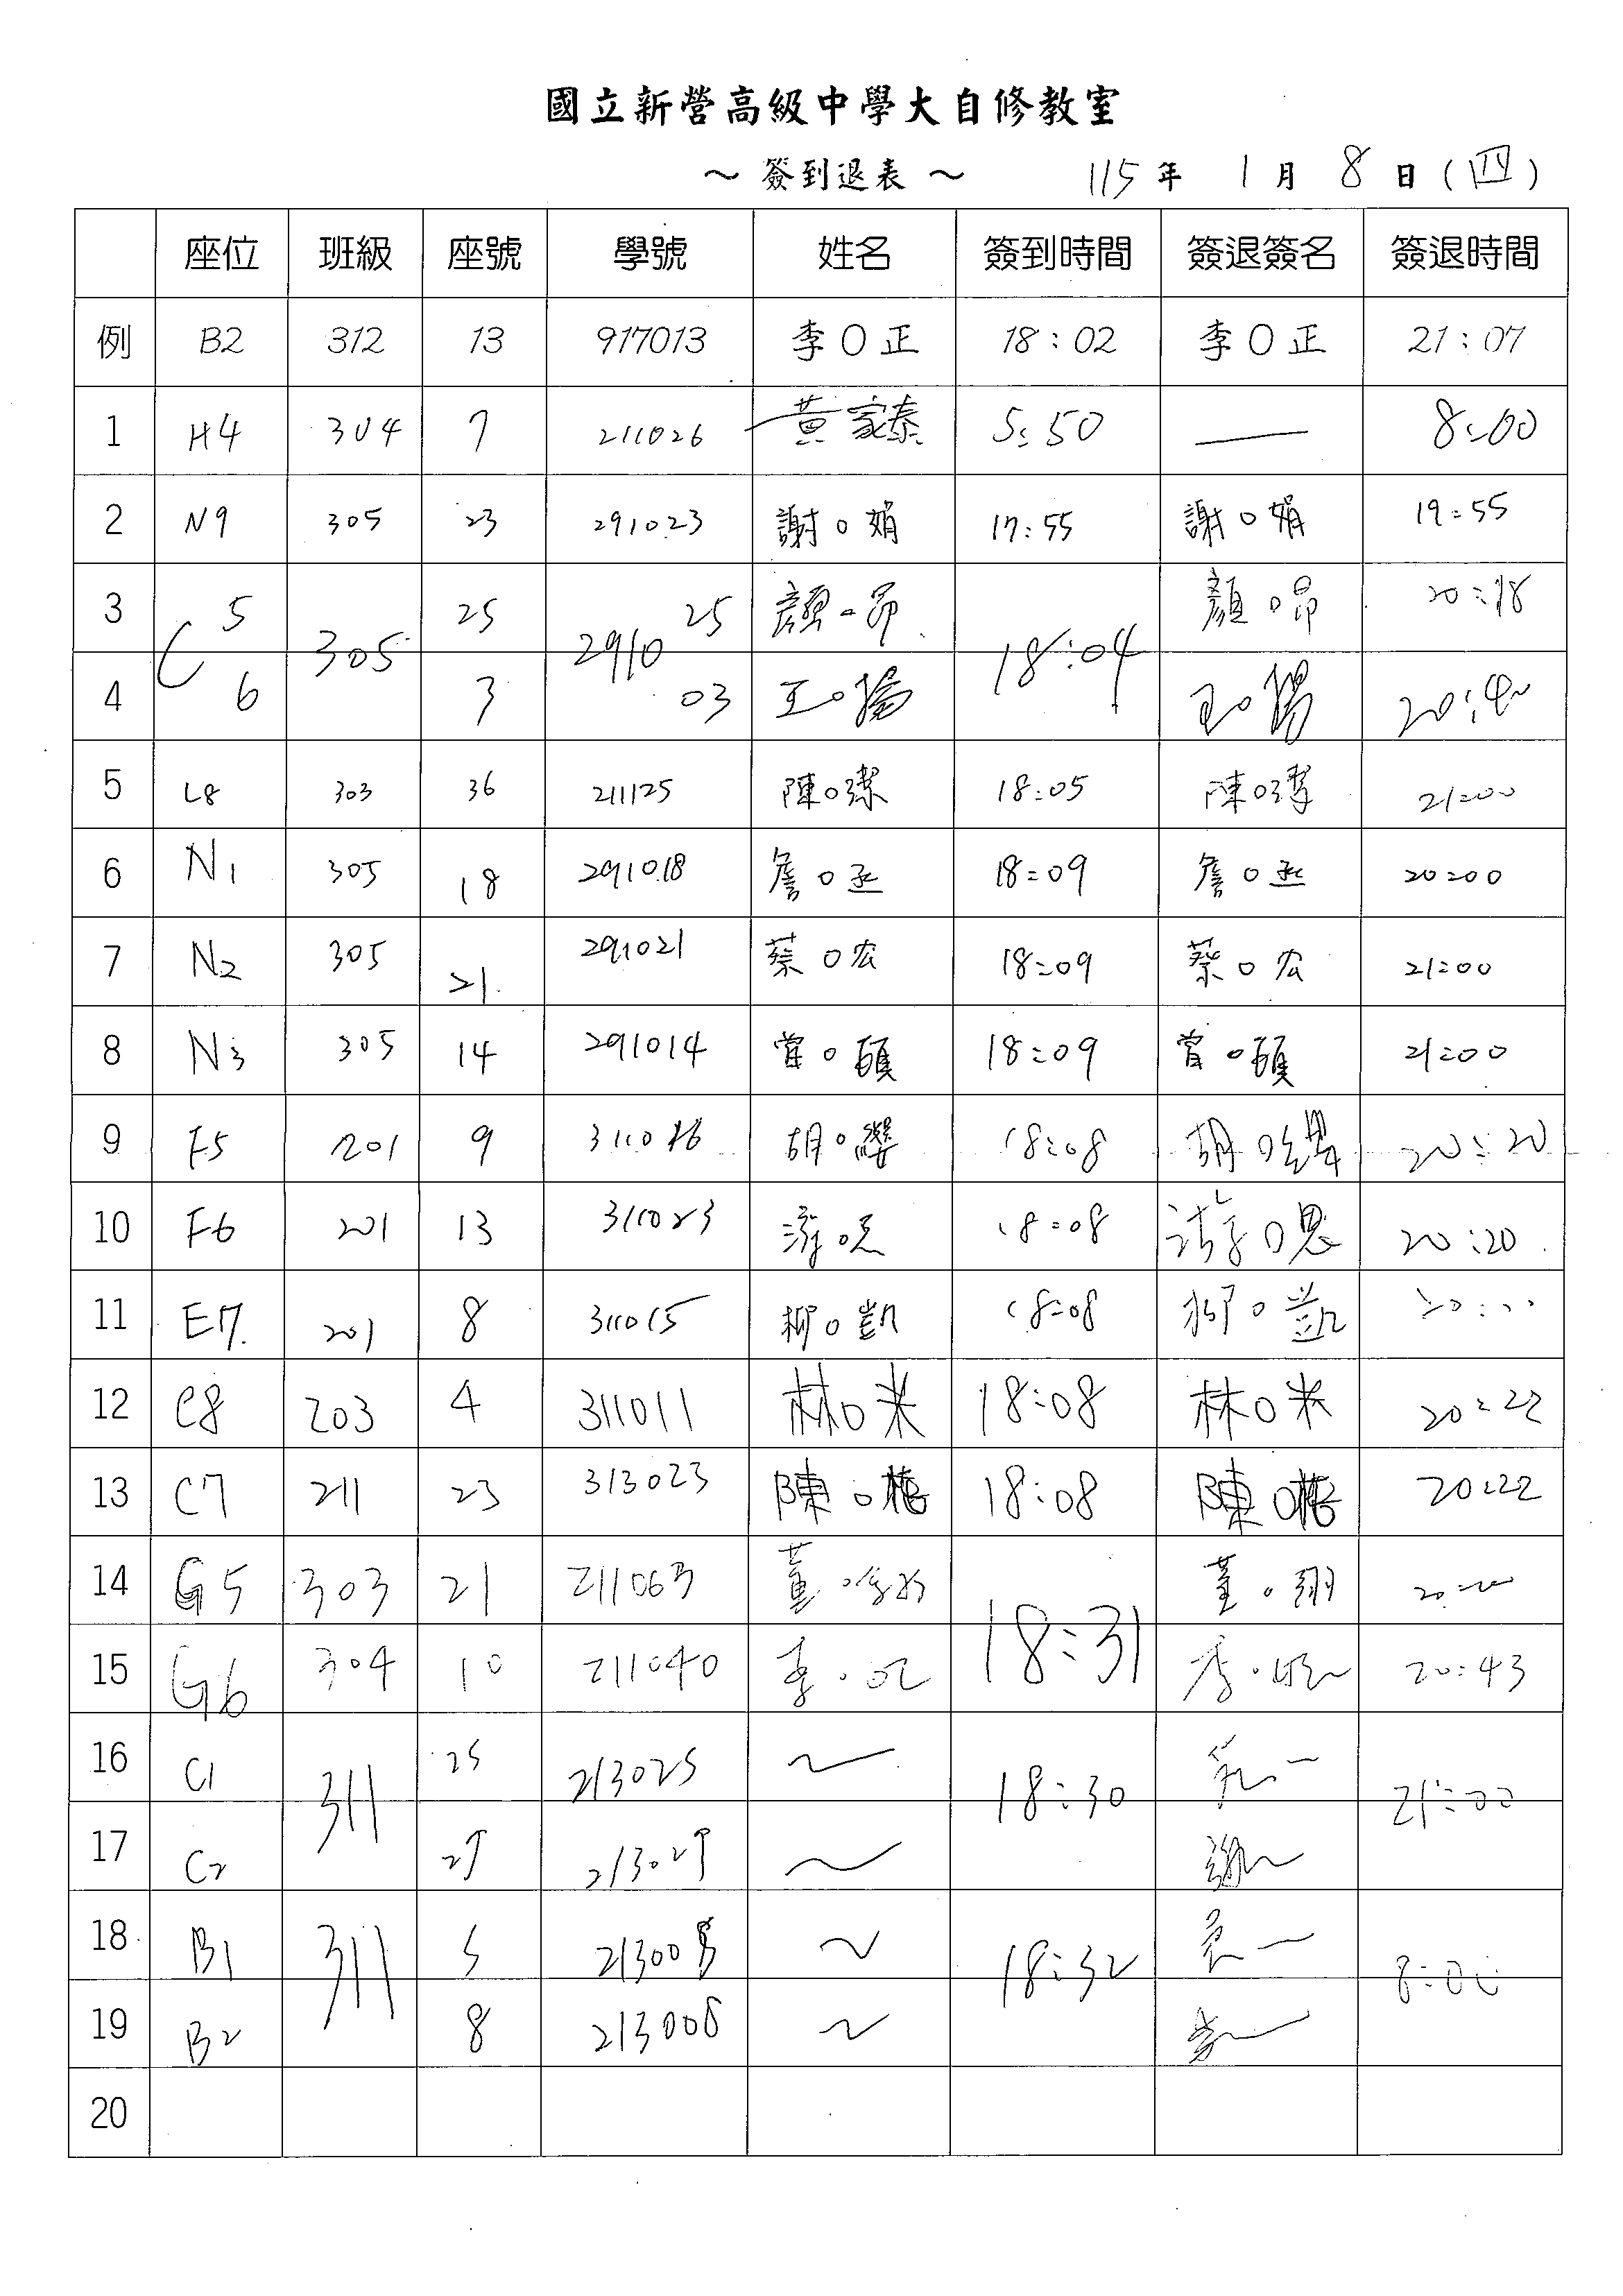 國立新營高級中學大自修教室
～ 簽到退表 ～ 115 年 1 月 8 日 (四)
座位 班級 座號 學號 姓名 簽到時間 簽退簽名 簽退時間
例 B2 312 13 917013 李O正 18:02 李O正 21:07
1 H4 304 7 211026 黃家泰 5:50 — 8:00
2 N9 305 23 291023 謝O娟 17:55 謝O娟 19:55
3 C5 305 25 291025 顏O昂 18:04 顏O昂 20:18
4 6 3 03 王O揚 王O揚
5 L8 303 36 211125 陳O潔 18:05 陳O潔 21:00
6 N1 305 18 291018 詹O丞 18:09 詹O丞 20:00
7 N2 305 21 291021 蔡O宏 18:09 蔡O宏 21:00
8 N3 305 14 291014 O碩 18:09 O碩 21:00
9 F5 201 9 胡O 18:08 胡O 20:20
10 F6 201 13 311023 游O恩 18:08 游O恩 20:20
11 E7 201 8 311015 柳O凱 18:08 柳O凱
12 C8 203 4 311011 林O米 18:08 林O米 20:22
13 C7 211 23 313023 陳O 18:08 陳O 20:22
14 G5 303 21 211063 董O 18:31 董O翔
15 G6 304 10 211040 李O 李O 20:43
16 C1 311 25 213025 18:30 21:00
17 C2 27 213027 謝
18 B1 311 5 18:32 8:00
19 B2 8 213008
20